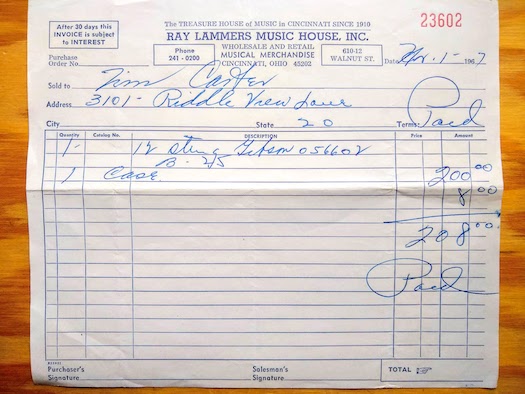 After 30 days this
INVOICE is subject
to INTEREST
The TREASURE HOUSE of MUSIC in CINCINNATI SINCE 1910
23602
RAY LAMMERS MUSIC HOUSE, INC.
Phone
241 - 0200
WHOLESALE AND RETAIL
MUSICAL MERCHANDISE
CINCINNATI, OHIO 45202
610-12
WALNUT ST.
Purchase
Order No.
Date 1 - 1967
Sold to Tim Carter
Address 3101 - Riddle View Lane
Paid
City State 20 Terms:
Quantity Catalog No. DESCRIPTION Price Amount
1 - 12 String Gibson 056602
B. 2/5
1 Case 200 00
8 00
208 00
Paid
Purchaser's
Signature
Salesman's
Signature
TOTAL